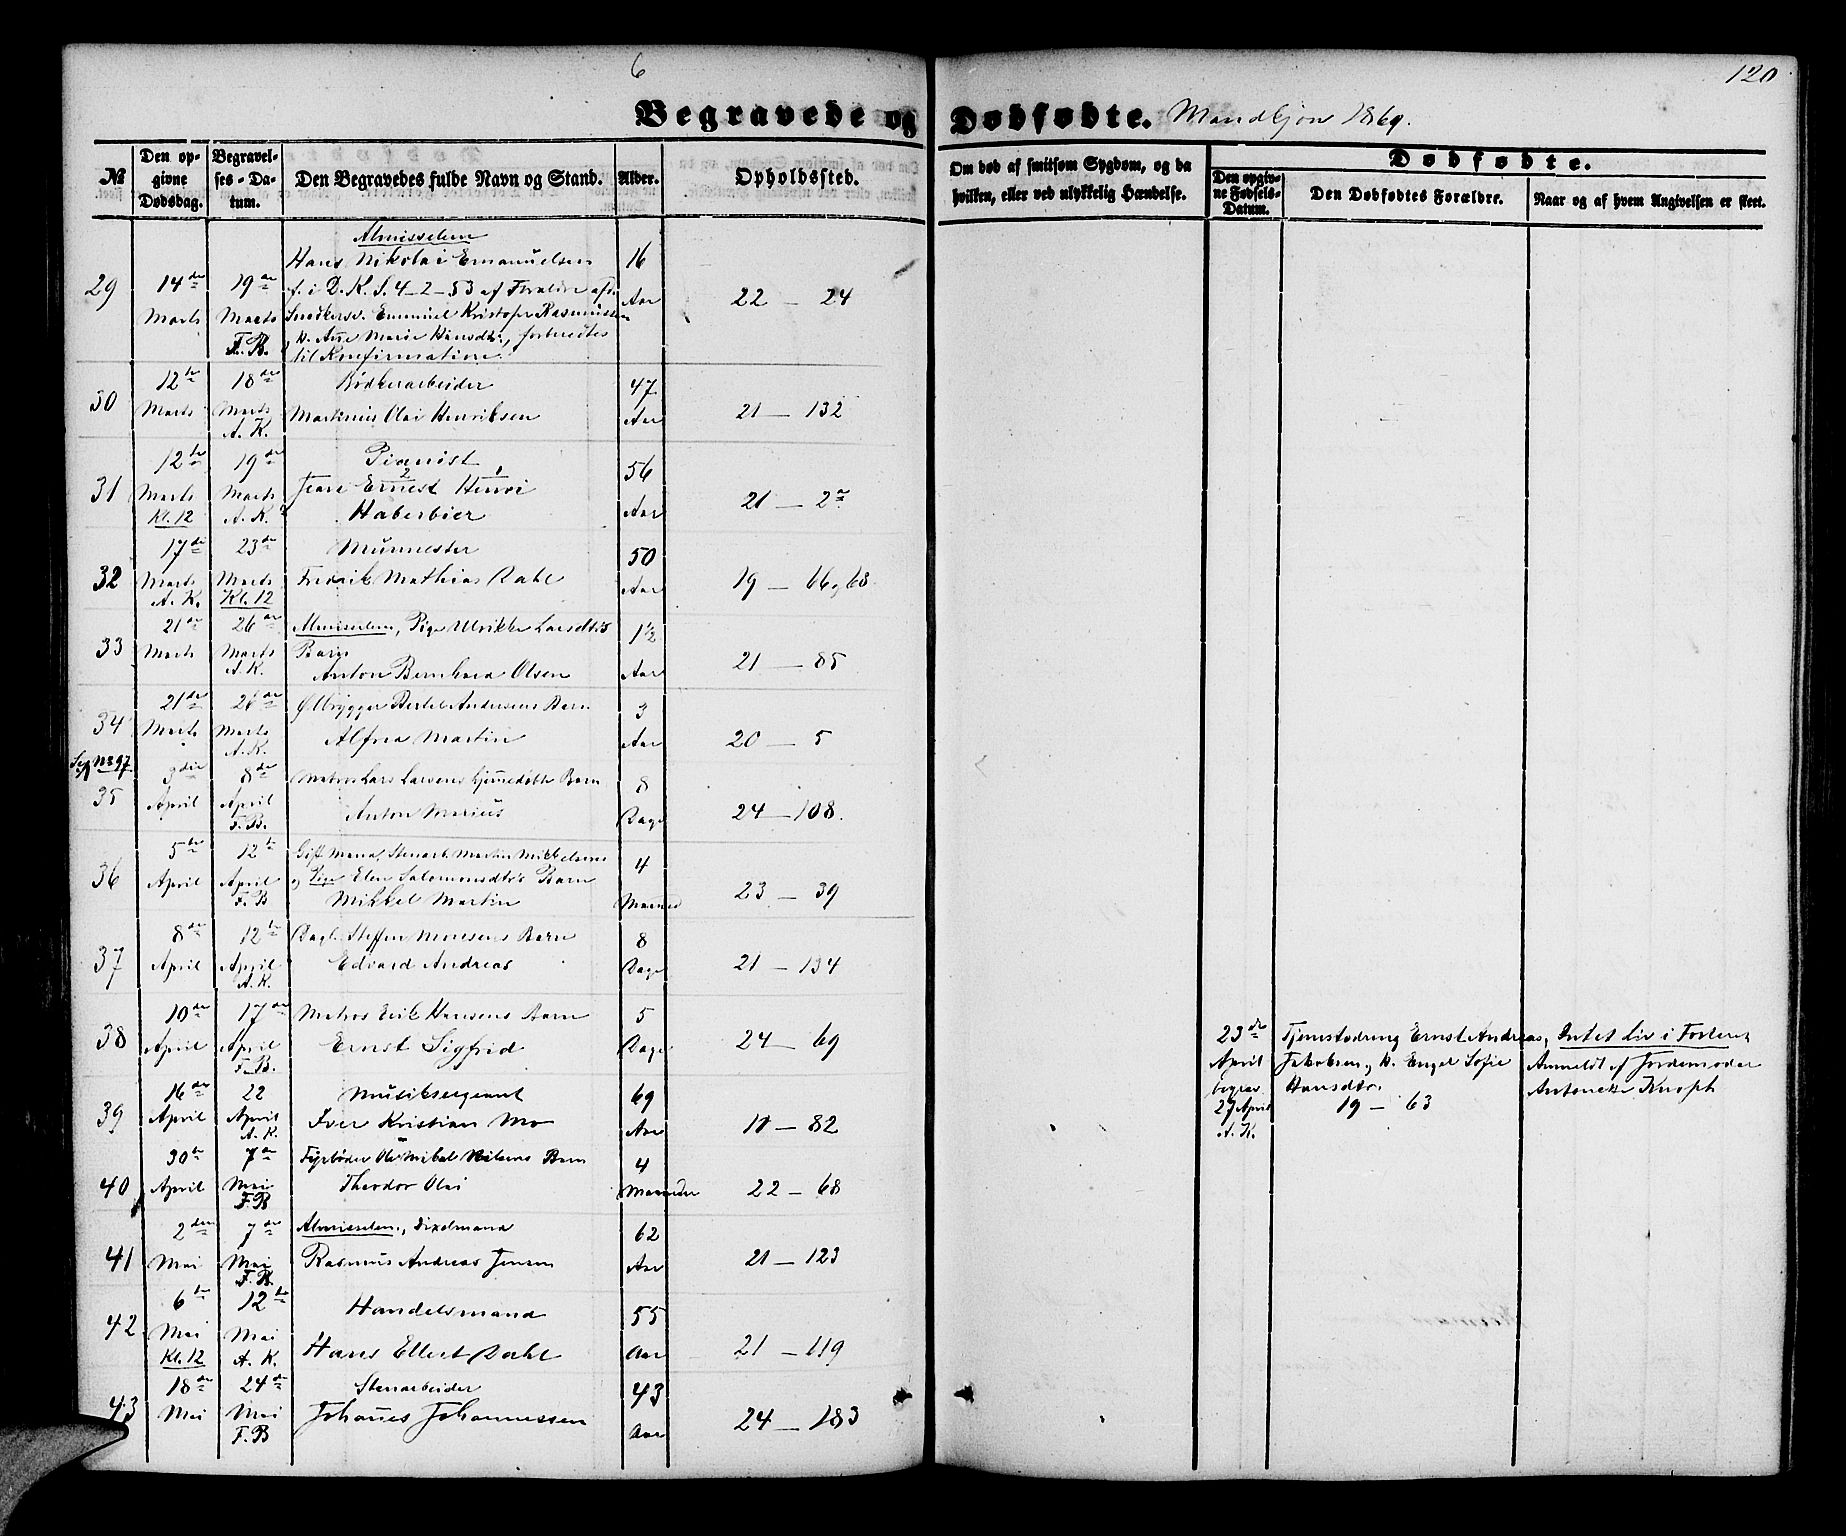 6
120
Begravede og Dødfødte. Mandkjøn 1869.
№
Den opgivne Dødsdag.
Begravelses-Datum.
Den Begravedes fulde Navn og Stand.
Alder.
Opholdssted.
Om død af smitsom Sygdom, og da hvilken, eller ved ulykkelig Hændelse.
Dødfødte.
Den opgivne Fødsels-Datum.
Den Dødfødtes Forældre.
Naar og af hvem Angivelsen er skeet.
Almisselem
29 14de Marts 19de Marts F.B. Hans Nikolai Emanuelsen 16 Aar 22 – 24
f. i D. K. S. 4-2-53 af Forældre afd.
Snedkersv. Emanuel Kristofer Rasmussen
og H. Ane Marie Hansdtr, forberedtes
til Konfirmation.
30 12te Marts 18de Marts A.K. Bødkerarbeider 47 Aar 21 – 132
Martinius Olai Henriksen
31 12te Marts Kl. 12 19de Marts A.K. Pianist 56 Aar 21 – 2a
Jean Ernest Henri
Haberbier
32 17de Marts A.K. 23de Marts Kl. 12 Murmester 50 Aar 19 – 66 og 68
Fredrik Mathias Dahl
33 21de Marts 26de Marts A.K. Almisselem, Pige Ulrikke Larsdtrs 1½ Aar 21 – 85
Barn
Anton Bernhard Olsen
34 21de Marts 26de Marts A.K. Ølbrygger Bertel Andersens Barn 3 Aar 20 – 5
Alfred Martin
Sep No 97
35 3die April 8de April F.B. Matros Lars Larsens hjemmedøbte Barn 8 Dage 24 – 108.
Anton Marius
36 5te April 12te April F.B. Gift Mand, Stenarb. Martin Mikkelsens 4 Maaned 23 – 39
og Pige Elen Salomonsdtrs Barn
Mikkel Martin
37 8de April 12te April A.K. Dagl. Steffen Monsens Barn 8 Dage 21 – 134
Edvard Andreas
38 10de April 17de April F.B. Matros Erik Hansens Barn 5 Dage 24 – 69
Ernst Sigfrid
39 16de April 22 April A.K. Musiksergeant 69 Aar 11 – 82
Iver Kristian Mo
40 30te April 7de Mai F.B Fyrbøder Ole Mikal Nilsens Barn 4 Maaneder 22 – 68
Theodor Olai
41 2den Mai 7de Mai F.B. Almisselem, Sixelmand 62 Aar 21 – 123
Rasmus Andreas Jensen
42 6te Mai Kl. 12 12te Mai A.K. Handelsmand 55 Aar 21 – 119
Hans Ellert Dahl
43 18de Mai 24de Mai F.B Stenarbeider 43 Aar 24 – 183
Johannes Johannessen
23de April begrav. 27 April A.K.
Tjenestedreng Ernst Andreas
Jakobsen, og H. Engel Sofie
Hansdtr.
19 – 63
Intet Liv i Fosteret
Anmeldt af Jordemoder
Antonette Knoph